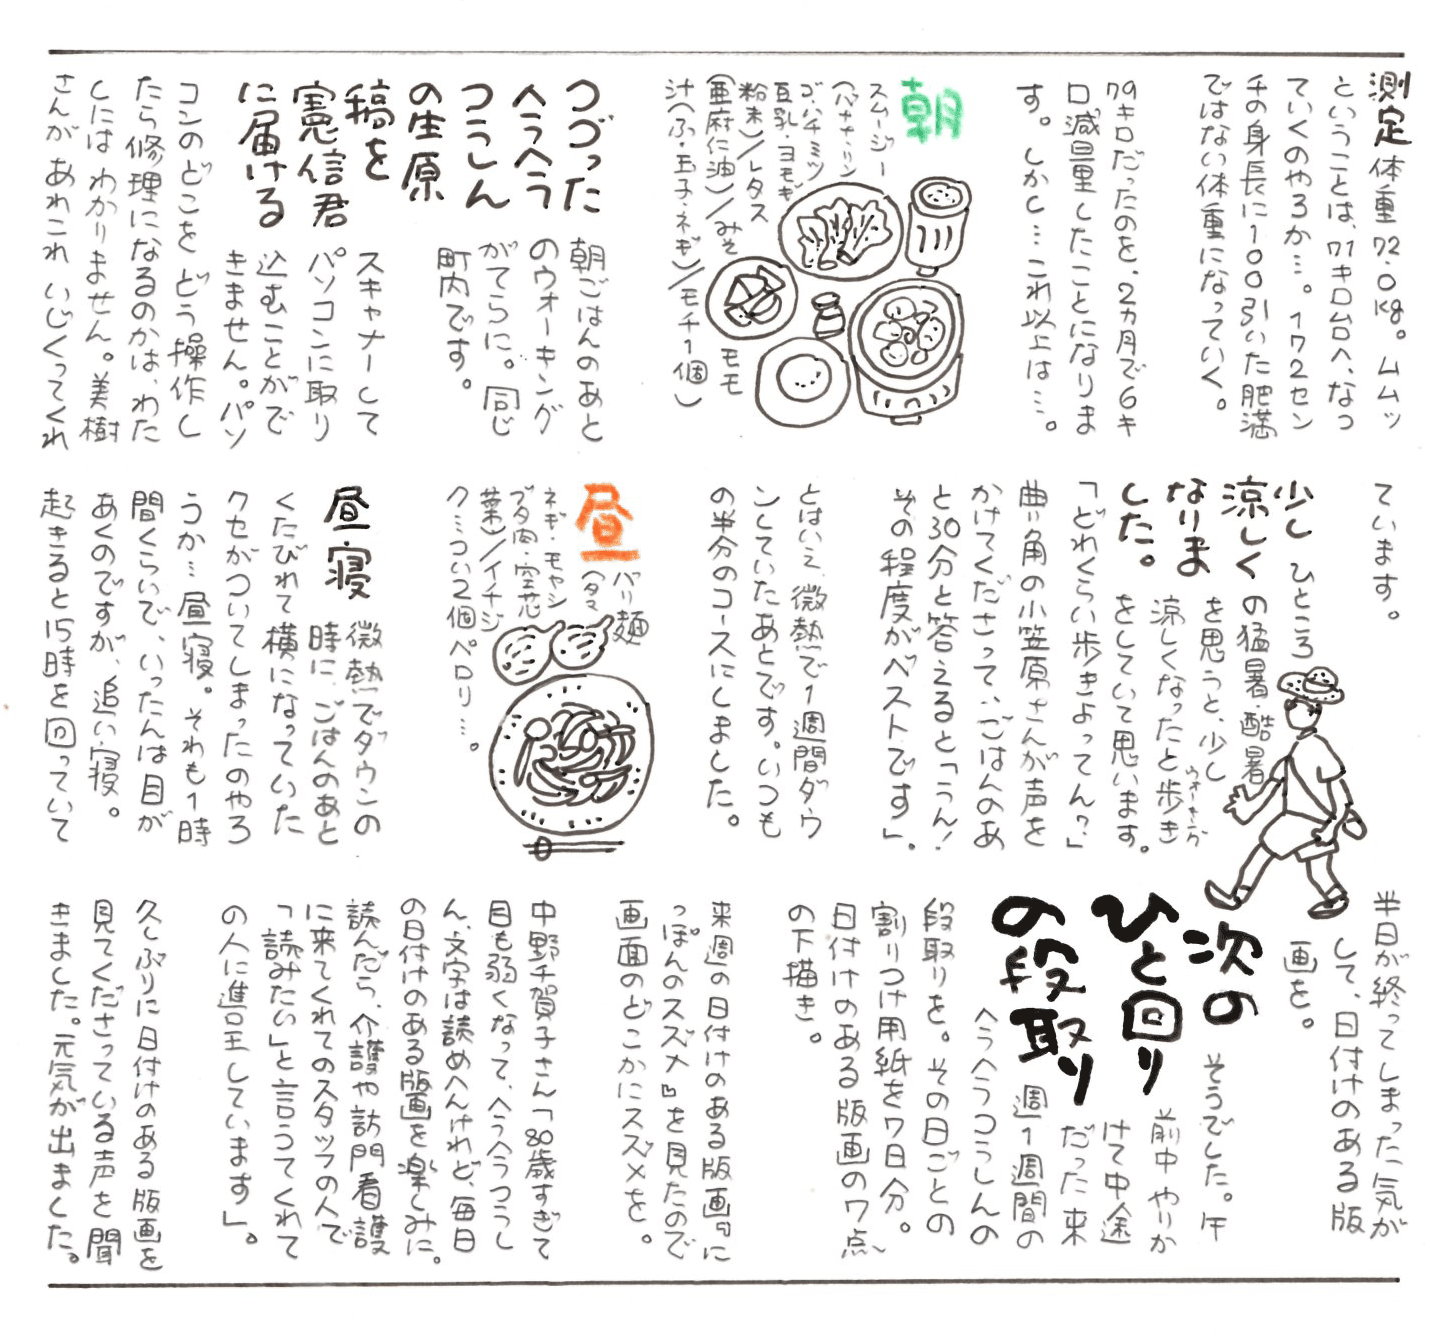 測定 体重72.0kg。ムムッ
ということは、71キロ台へ、なっ
ていくのやろか…。172セン
チの身長に100引いた肥満
ではない体重になっていく。
79キロだったのを、2ヵ月で6キ
ロ減量したことになりま
す。しかし…これ以上は…。
朝
スムージー
(バナナ・リン
ゴ・ハチミツ
豆乳・ヨモギ
粉末)/レタス
(亜麻仁油)/みそ
汁(ふ・玉子・ネギ)/モチ1個)
モモ
つづった
ヘラヘラ
つうしん
の生原
稿を
憲信君
に届ける
朝ごはんのあと
のウォーキング
がてらに。同じ
町内です。
スキャナーして
パソコンに取り
込むことがで
きません。パソ
コンのどこをどう操作し
たら修理になるのかは、わた
しにはわかりません。美樹
さんがあれこれいじくってくれ
ています。
少し
涼しく
なりま
した。
ひところ
の猛暑・酷暑
を思うと、少し
涼しくなったと歩き
ウォーキング
をしていて思います。
「どれくらい歩きよってん?」
曲り角の小笠原さんが声を
かけてくださって、ごはんのあ
と30分と答えると「うん!
その程度がベストです」。
とはいえ、微熱で1週間ダウ
ンしていたあとです。いつも
の半分のコースにしました。
昼
バリ麺
(タマ
ネギ・モヤシ
ブタ肉・空芯
菜)/イチジ
ク…つい2個ペロリ…。
昼寝
微熱でダウンの
時に、ごはんのあと
くたびれて横になっていた
クセがついてしまったのやろ
うか…昼寝。それも1時
間くらいで、いったんは目が
あくのですが、追い寝。
起きると15時を回っていて
半日が終ってしまった気が
して、日付けのある版
画を。
次の
ひと回り
の段取り
そうでした。午
前中やりか
けて中途
だった来
週1週間の
ヘラヘラつうしんの
段取りを。その日ごとの
割りつけ用紙を7日分。
日付けのある版画の7点
の下描き。
来週の日付けのある版画『に
っぽんのスズメ』を見たので
画面のどこかにスズメを。
中野千賀子さん「80歳すぎて
目も弱くなって、ヘラヘラつうし
ん、文字は読めへんけれど、毎日
の日付けのある版画を楽しみに。
読んだら、介護や訪問看護
に来てくれてのスタッフの人で
「読みたい」と言うてくれて
の人に進呈しています」。
久しぶりに日付けのある版画を
見てくださっている声を聞
きました。元気が出ました。